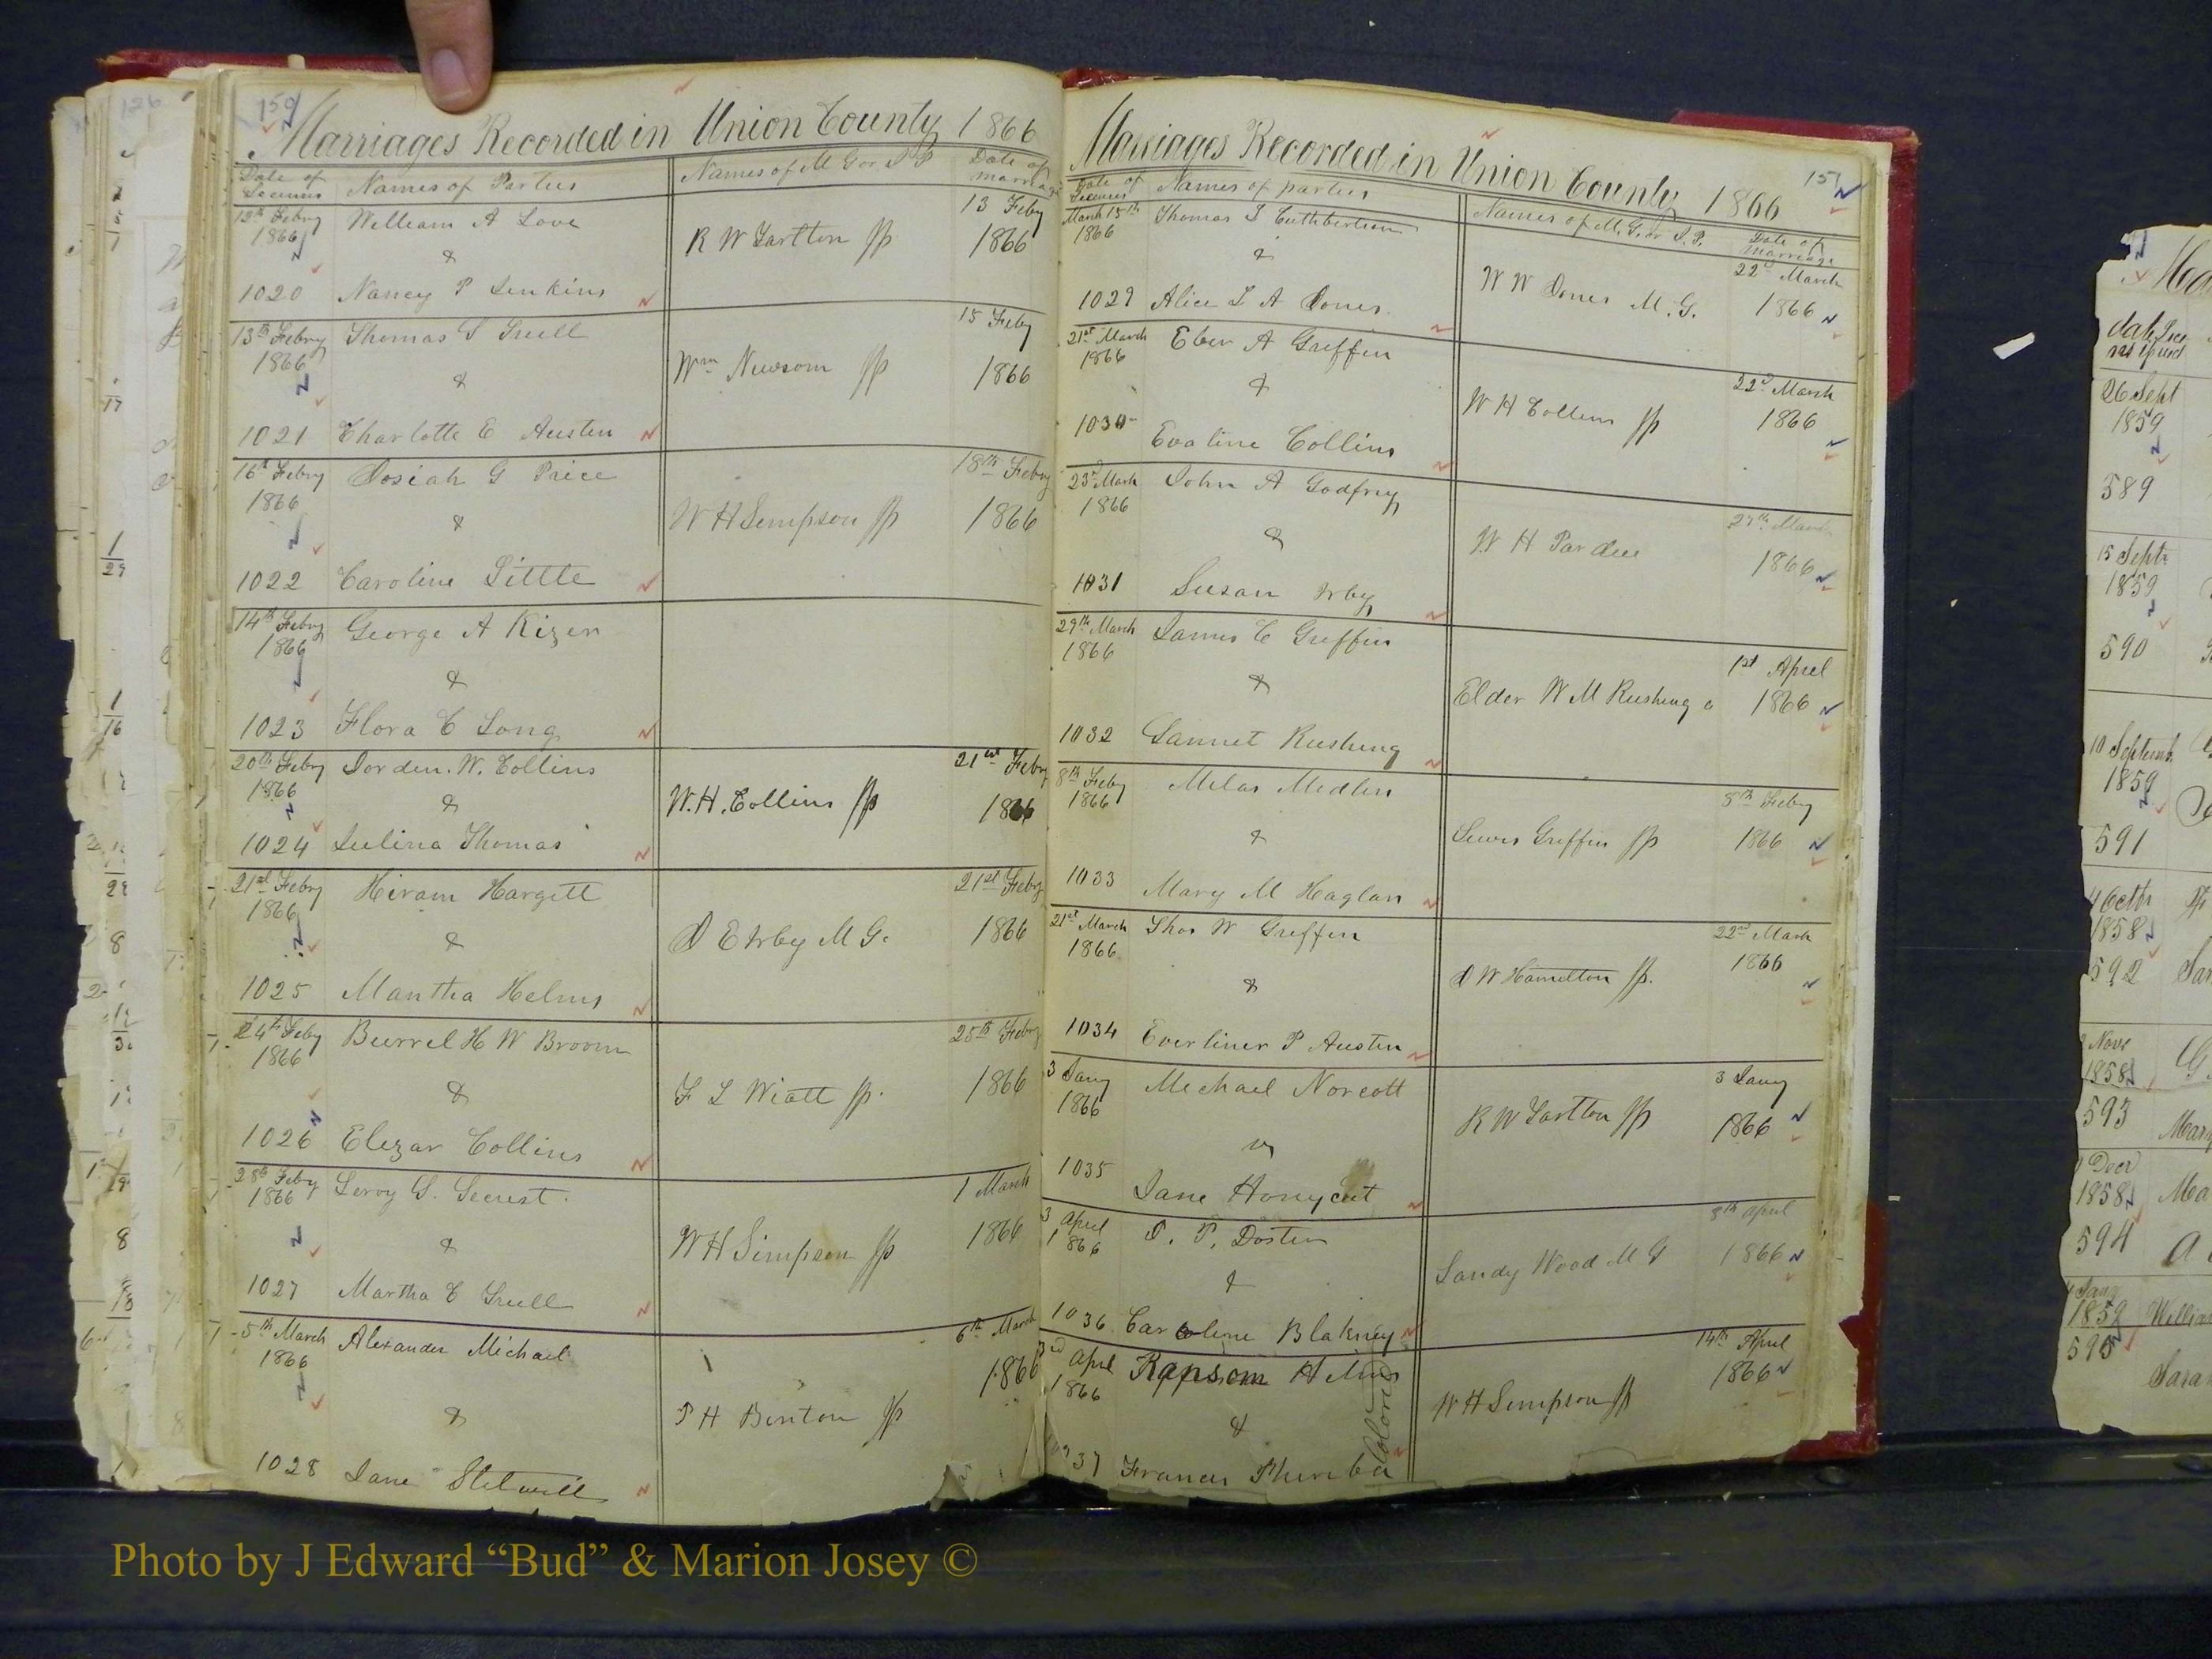 150
Marriages Recorded in Union County 1866
Date of Names of Parties Names of M G or J P Date of marriage
13 Feby
1866 William A Love R W Tartton JP 1866
&
1020 Nancy P Jenkins
13th Febry Thomas S Trull 15 Feby
1866 & Wm Newsom JP 1866
1021 Charlotte E Austin
16th Febry Josiah G Price 18th Febry
1866 & W H Simpson JP 1866
1022 Caroline Little
14th Febry George A Kizer
1866
&
1023 Flora C Long
20th Febry Jorden. W. Collins 21st Febry
1866 & W. H. Collins JP 1866
1024 Julina Thomas
21st Febry Hiram Hargett 21st Febry
1866 & D E Irby M G. 1866
1025 Mantha Helms
24th Feby Burrel H W Broom 25th Febry
1866 & F L Wiatt JP. 1866
1026 Elezar Collins
28th Feby Leroy G. Secrest. 1 March
1866 & W H Simpson JP 1866
1027 Martha E Trull
5th March Alexander Michael 6th March
1866 & P H Benton JP 1866
1028 Jane Stilwell
151
Marriages Recorded in Union County 1866
Date of Names of parties Names of M. G. or J. P. Date of marriage
March 15th Thomas L Cuthbertson 22d March
1866 & W W Jones M. G. 1866
1029 Alice L A Jones.
21st March Eber A Griffin 22d March
1866 & W H Collins JP 1866
1030 Evaline Collins
23d March John A Godfrey 27th March
1866 & W H Pardue 1866
1031 Susan Irby
29th March James C Griffin 1st April
1866 & Elder W M Rushing 1866
1032 Jannet Rushing
8th Feby Milas Medlin 8th Feby
1866 & Lewis Griffin JP 1866
1033 Mary M Haglan
21st March Thos W Griffin 22nd March
1866 & D W Hamilton JP. 1866
1034 Everliner P Austin
3 Jany Michael Norcott 3 Jany
1866 R W Tartton JP 1866
1035 Jane Honycut
3 April J. P. Doster 8th April
1866 & Sandy Wood M G 1866
1036 Caroline Blakney
April Ransom Helms 14th April
1866 & W H Simpson JP 1866
1037 Frances
Colored
126
26 Sept
1859
589
15 Septr
1859
590
10 Septemr
1859
591
4 Octr
1858
592
Novr
1858
593
Decr
1858
594
Jany
1859
595
Photo by J Edward “Bud” & Marion Josey ©